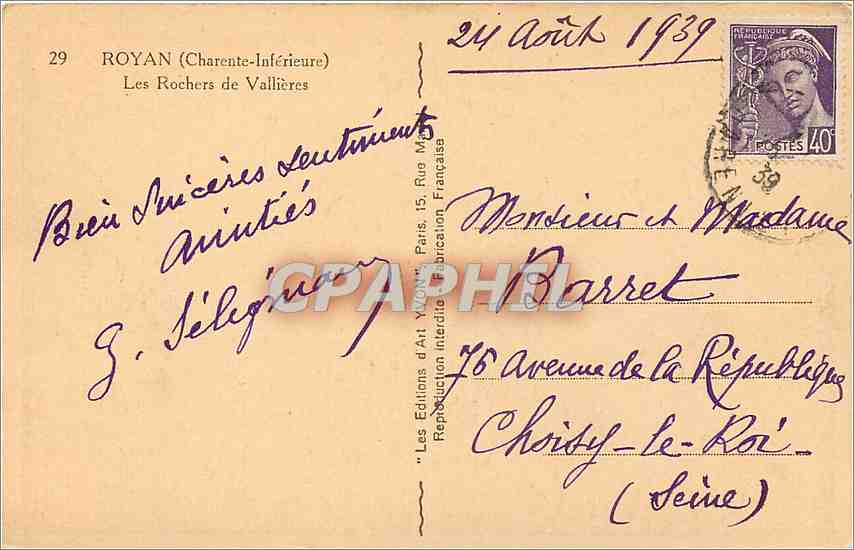 29 ROYAN (Charente-Inférieure)
Les Rochers de Vallières
Bien Sincères sentiments
amitiés
G. Séligmann
"Les Editions d'Art YVON" Paris, 15, Rue Ma
Reproduction Interdite Fabrication Française
24 Août 1939
RÉPUBLIQUE
FRANÇAISE
POSTES 40c
39
Monsieur et Madame
Barret
75 Avenue de la République
Choisy-le-Roi-
(Seine)
CPAPHIL